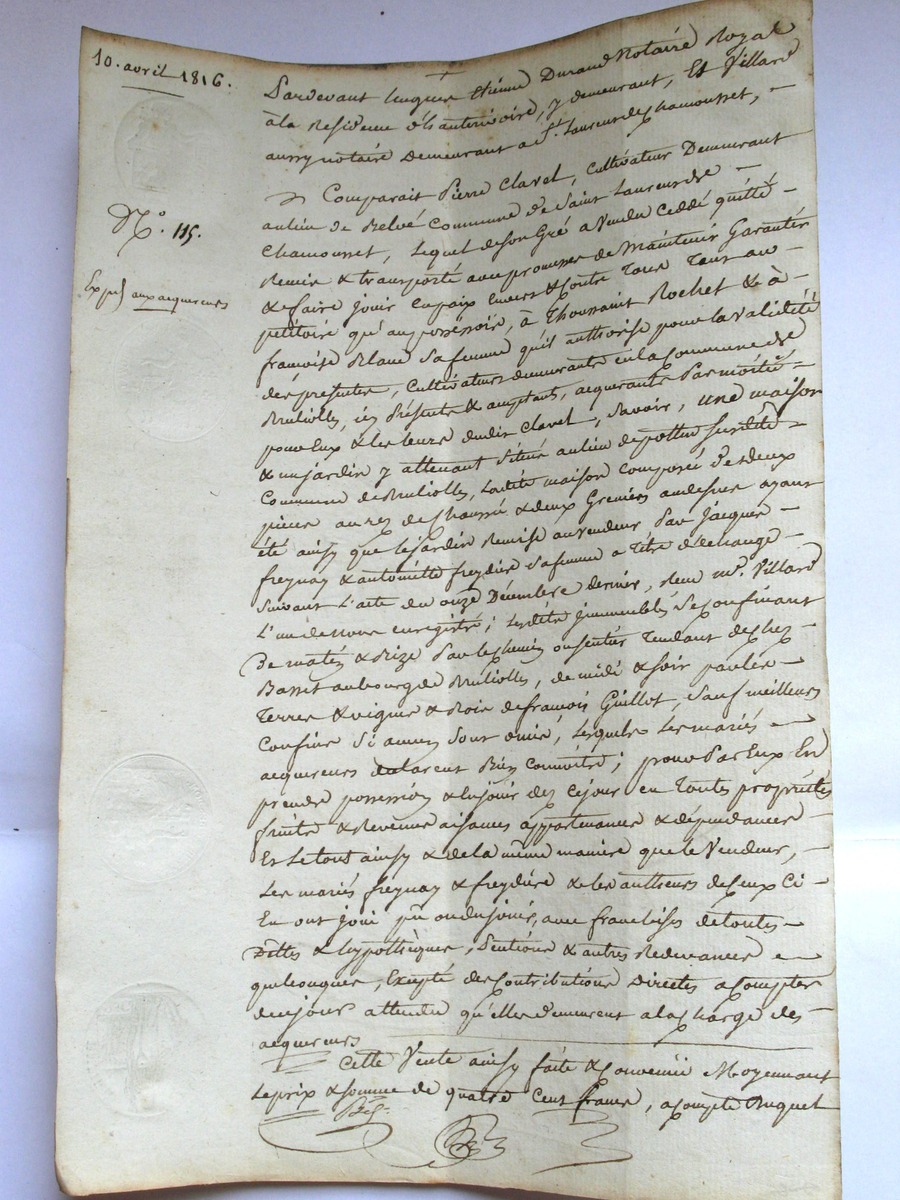 10. avril 1816.
N.° 115.
Expé aux acquereurs
Pardevant Luc Etienne Durand Notaire Royal
à la Residence d'hauterivoire, y demeurant, Et Villard
aussy notaire Demeurant a St. Laurent de chamousset, —
Comparait Pierre Clavel, Cultivateur Demeurant
au lieu de Commune De Saint Laurent de —
Chamousset, lequel de son Gré a Vendu Ceddé quitté —
Remis & transporté avec promesse de Maintenir Garantir
& faire jouir en paix Envers & Contre Tous Tant au —
petitoire qu'au possessoire, à Thoussaint Rochet & à
françoise Blanc Sa femme qu'il authorise pour la validité
des présentes, Cultivateurs demeurants en la Commune de
Bruliolles, icy Présents & acceptants, acquerants Par moitié —
pour Eux & les leurs dudit Clavel, Savoir, une maison
& un jardin y attenant Situé au lieu de pottu susdite —
Commune de Bruliolles, Ladite maison Composée de deux
pieces au rez de chaussé & deux Greniers au dessus ayant
été ainsy que le jardin Remise au Vendeur Par Jacques —
freynay & antoinette freydiere Sa femme a Titre d'échange —
Suivant L'acte du onze Décembre dernier, Reçu me. Villard
L'un de nous enregistré ; Lesdits immeubles Se Confinant
De matin & Bize Par le chemin ou sentier Tendant de chez —
Basset au bourg de Brulliolles, de midi & soir par les —
Terres & vignes & Bois de françois Guillot, Sauf meilleurs
Confins Si aucuns Sont omis, lesquels Les mariés —
acquereurs declarent Bien Connoitre ; pour Par Eux En
prendre possession & la jouir dez Ce jour en Toutes propriétés
fruits & Revenus aisances appartenances & dépendances —
Et Le tout ainsy & de la même maniere que le Vendeur, —
Les mariés freynay & freydière & les autheurs de Ceux Ci —
En ont joui pû ou du jouir, avec franchises de toutes —
Dettes & hypothèques, & autres Redevances —
quelconques, Excepté des Contributions Directes a Compter
de ce jour attendu qu'elles demeurent a la charge des —
acquereurs
Cette Vente ainsy faite & Convenue Moyennant
Le prix & somme de quatre Cent francs, a Compte Duquel